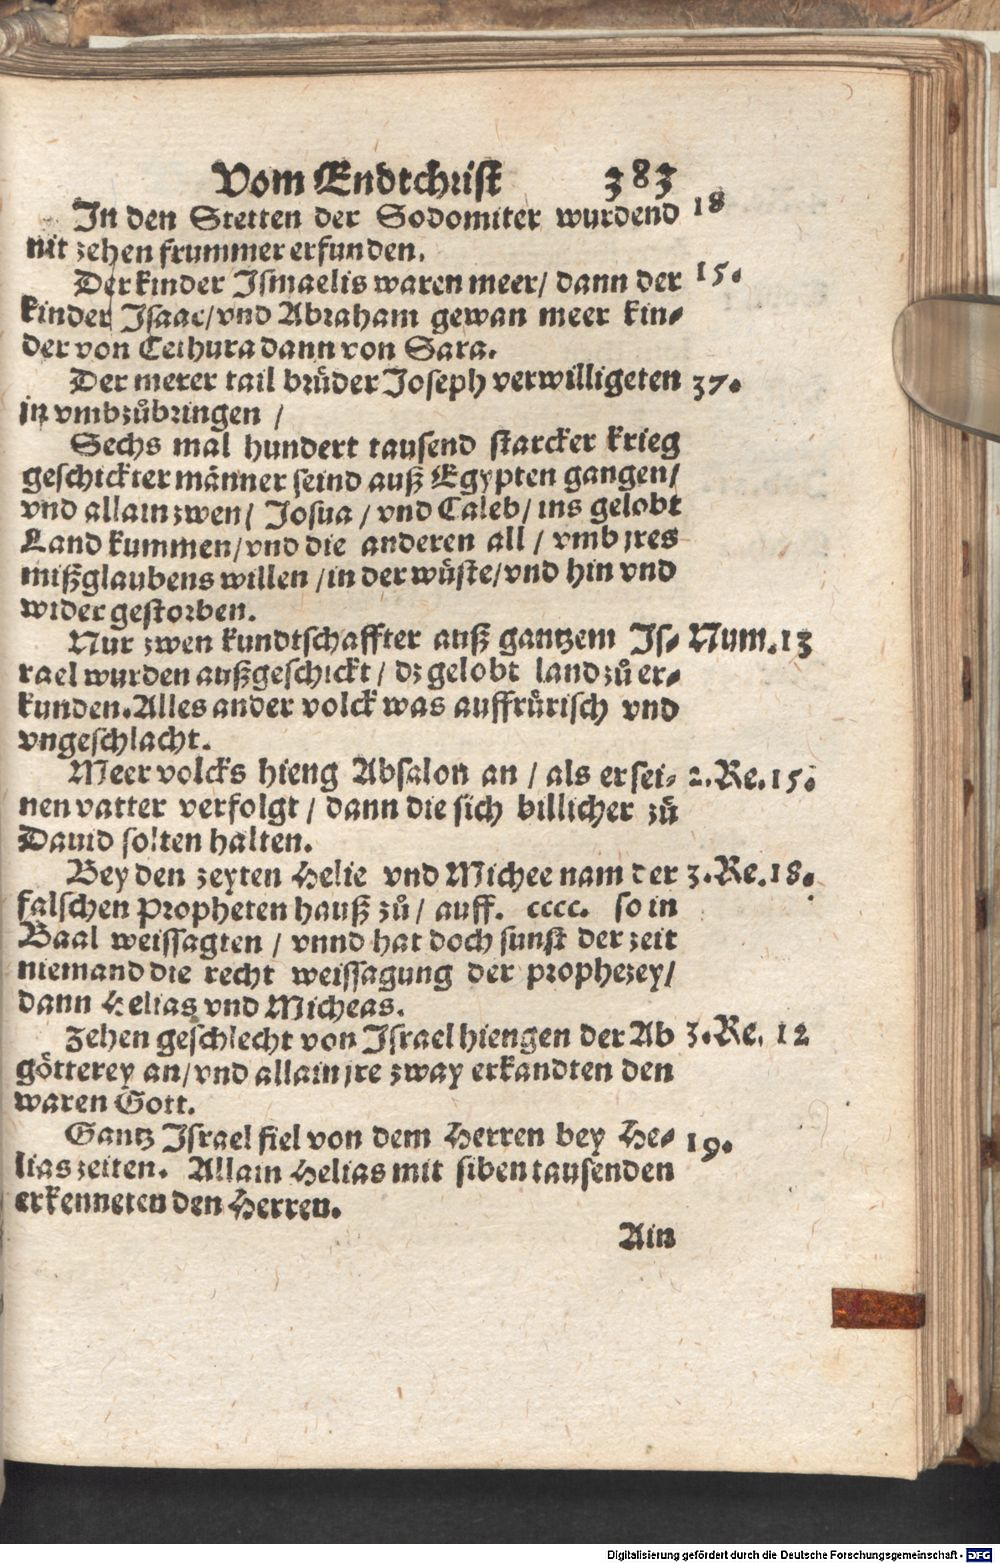 Vom Endtchrist 383
In den Stetten der Sodomiter wurdend 18
nit zehen frummer erfunden.
Der kinder Ismaelis waren meer/ dann der 15.
kinder Isaac/ vnd Abraham gewan meer kin-
der von Cethura dann von Sara.
Der merer tail brüder Joseph verwilligeten 37.
jn vmbzůbringen /
Sechs mal hundert tausend starcker krieg
geschickter männer seind auß Egypten gangen/
vnd allain zwen/ Josua / vnd Caleb/ ins gelobt
Land kummen/ vnd die anderen all / vmb jres
mißglaubens willen /in der wüste/ vnd hin vnd
wider gestorben.
Nur zwen kundtschaffter auß gantzem Is- Num.13
rael wurden außgeschickt / dz gelobt land zů er-
kunden. Alles ander volck was auffrürisch vnd
vngeschlacht.
Meer volcks hieng Absalon an / als er sei- 2.Re.15.
nen vatter verfolgt / dann die sich billicher zů
Dauid solten halten.
Bey den zeyten Helie vnd Michee nam der 3.Re.18.
falschen Propheten hauß zů / auff. cccc. so in
Baal weissagten / vnnd hat doch sunst der zeit
niemand die recht weissagung der prophezey/
dann Helias vnd Micheas.
Zehen geschlecht von Israel hiengen der Ab 3.Re. 12
götterey an/ vnd allain jre zway erkandten den
waren Gott.
Gantz Israel fiel von dem Herren bey He- 19.
lias zeiten. Allain Helias mit siben tausenden
erkenneten den Herren.
Ain
Digitalisierung gefördert durch die Deutsche Forschungsgemeinschaft - DFG